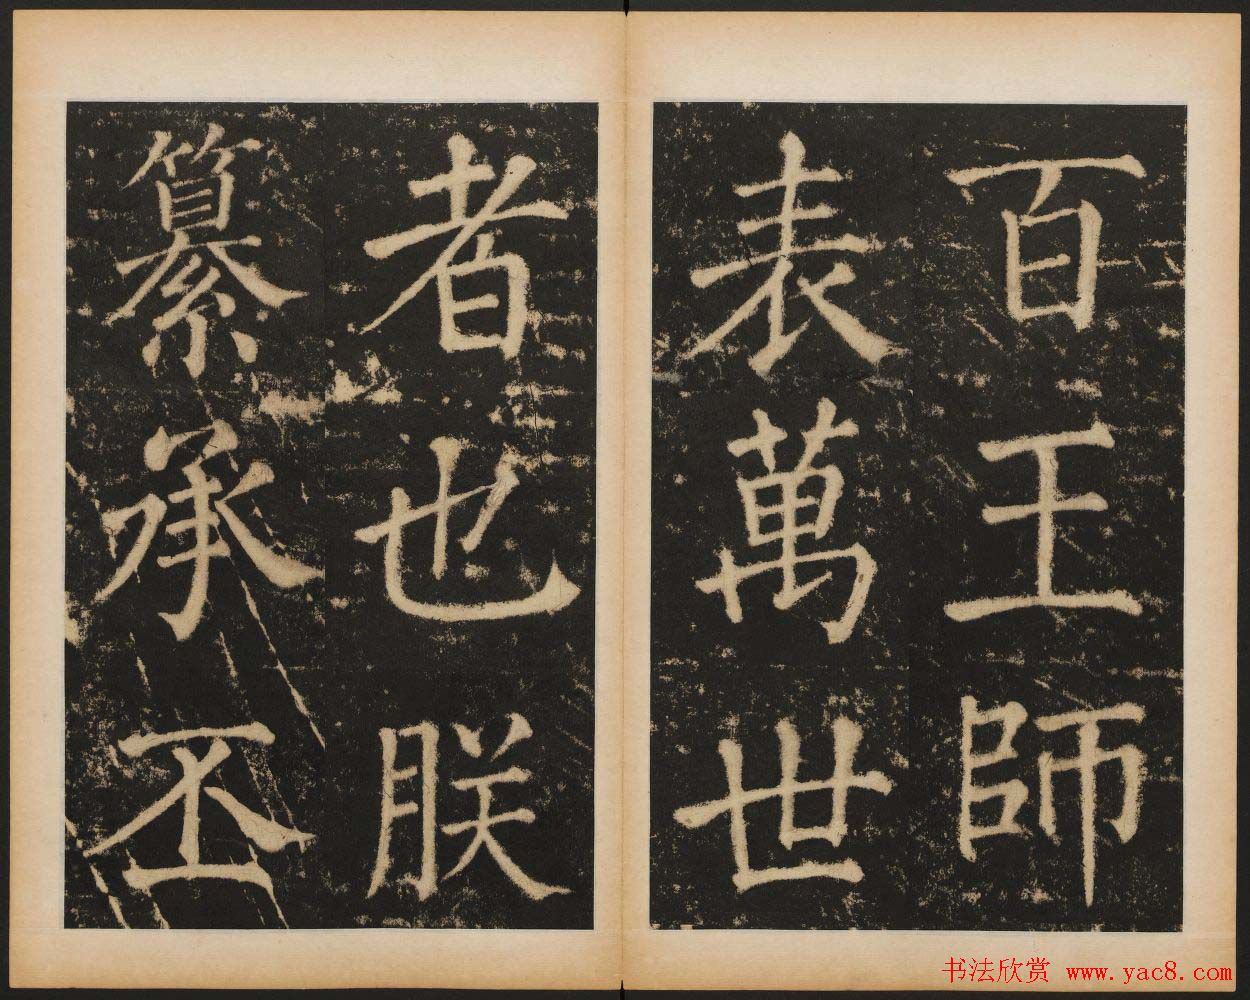 百王師
表萬世
者也朕
纂承丕
书法欣赏 www.yac8.com